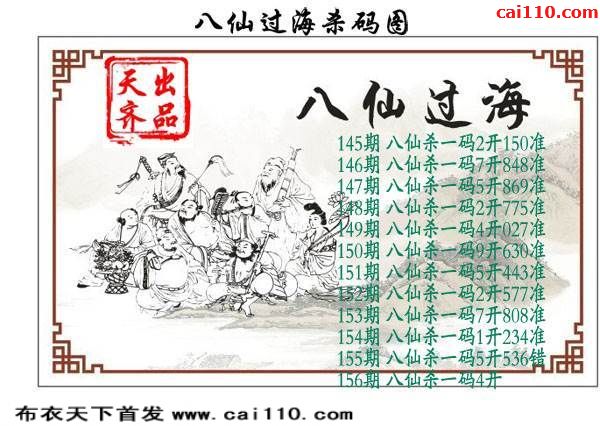 八仙过海杀码图
cai110.com
天出
齐品
八仙过海
145期 八仙杀一码2开150准
146期 八仙杀一码7开848准
147期 八仙杀一码5开869准
148期 八仙杀一码2开775准
149期 八仙杀一码4开027准
150期 八仙杀一码9开630准
151期 八仙杀一码5开443准
152期 八仙杀一码2开577准
153期 八仙杀一码7开808准
154期 八仙杀一码1开234准
155期 八仙杀一码5开536错
156期 八仙杀一码4开
布衣天下首发 www.cai110.com